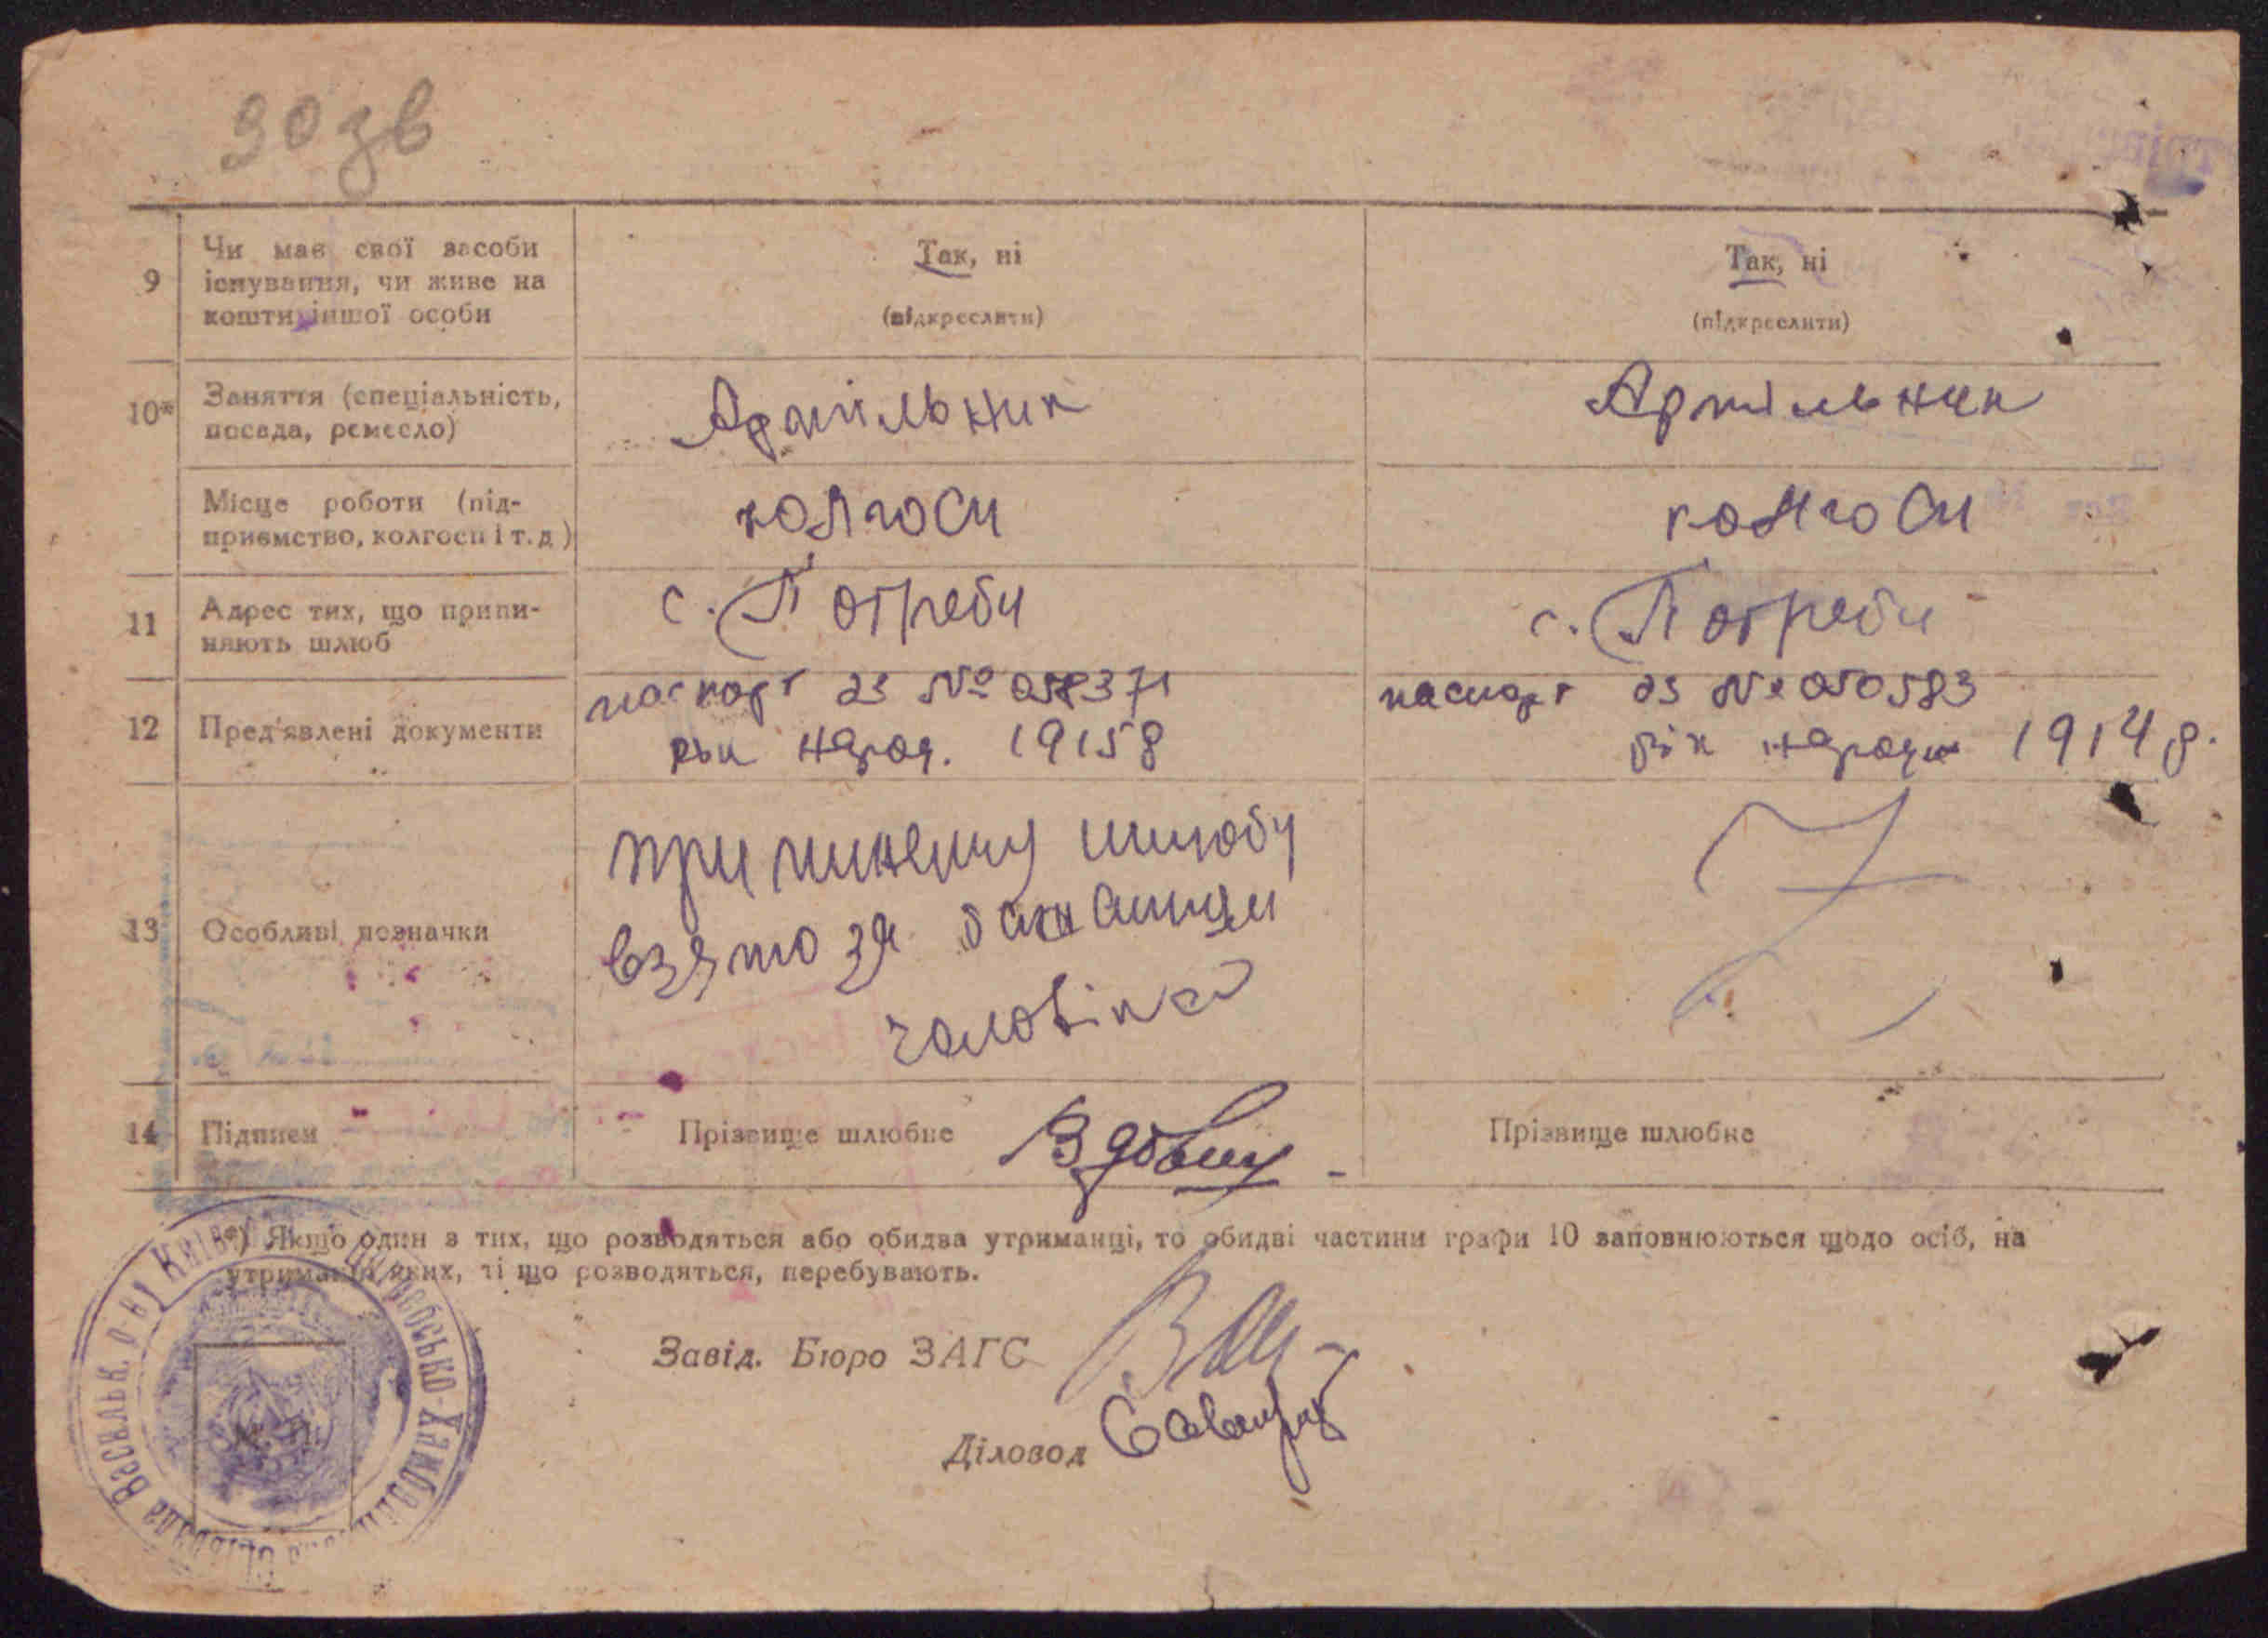 90 зв
9
Чи має свої засоби
існування, чи живе на
кошти іншої особи
Так, ні
(підкреслити)
Так, ні
(підкреслити)
10*
Заняття (спеціальність,
посада, ремесло)
Артильник
Артильник
Місце роботи (під-
приємство, колгосп і т. д)
колгосп
колгосп
11
Адрес тих, що припи-
няють шлюб
с. Погреби
с. Погреби
12
Пред'явлені документи
паспорт № 058371
рік народ. 1915 р
паспорт № 050583
рік народж 1914 р.
13
Особливі позначки
припинену шлюбу
взято за бажанням
чоловіка
14
Підписи
Прізвище шлюбне
Вдовиц
Прізвище шлюбне
*) Якщо один з тих, що розводяться або обидва утриманці, то обидві частини графи 10 заповнюються щодо осіб, на
утриманні яких, ті що розводяться, перебувають.
Завід. Бюро ЗАГС
Діловод
М. П.
Васильк. р-ну Київ